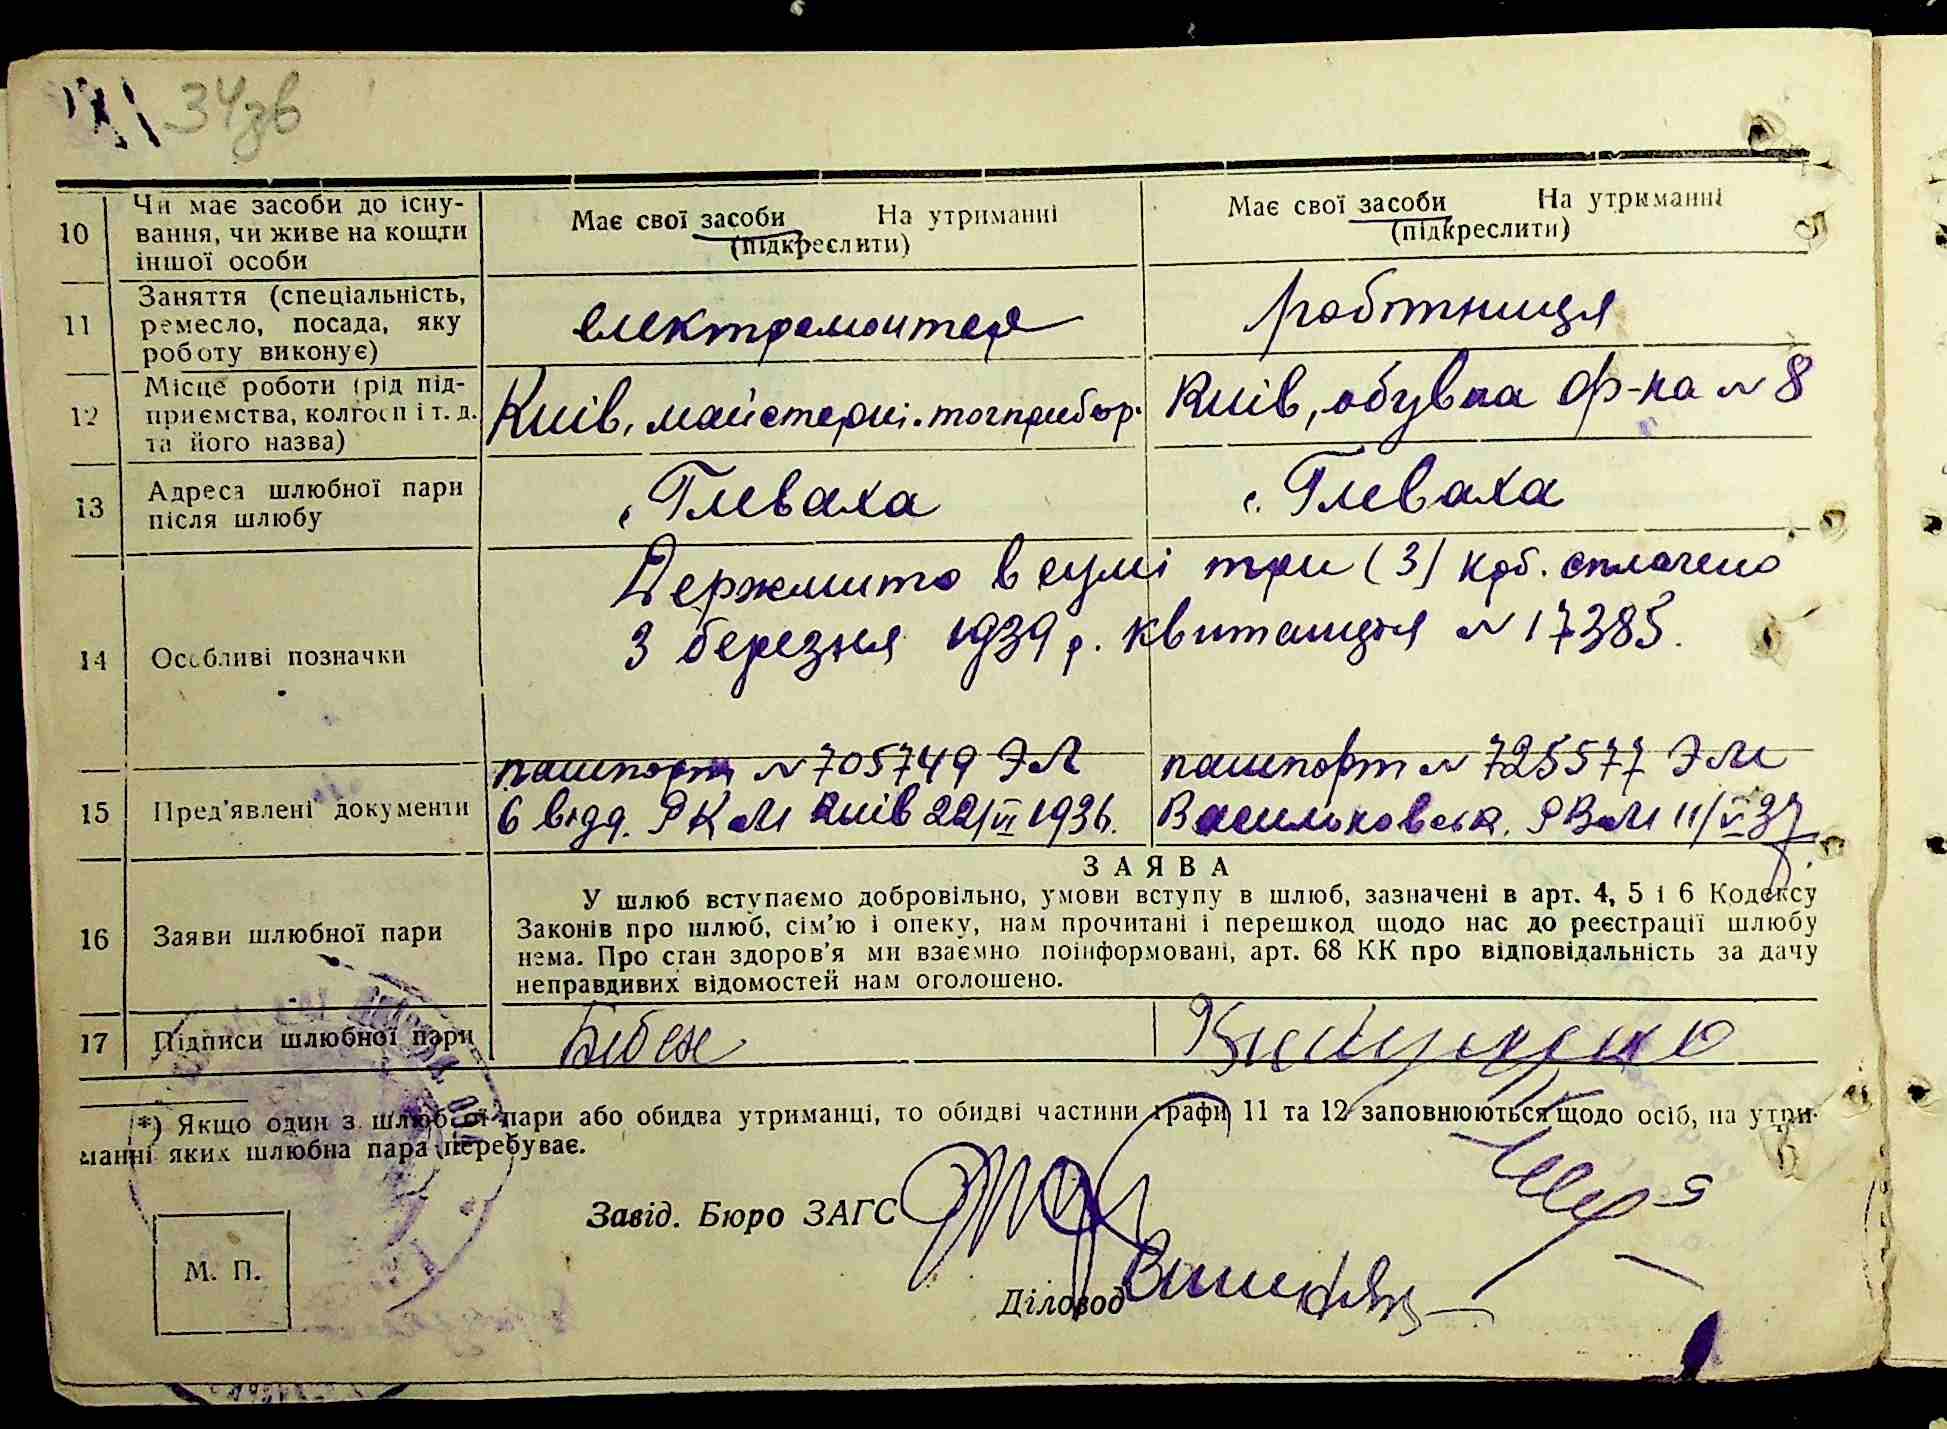 34зв
10 Чи має засоби до існу-
вання, чи живе на кошти
іншої особи
Має свої засоби На утриманні
(підкреслити)
Має свої засоби На утриманні
(підкреслити)
11 Заняття (спеціальність,
ремесло, посада, яку
роботу виконує)
електромонтер
робітниця
12 Місце роботи (рід під-
приємства, колгосп і т. д.
та його назва)
Київ, майстерні точприбор.
Київ, обувна ф-ка № 8
13 Адреса шлюбної пари
після шлюбу
с. Глеваха
с. Глеваха
14 Особливі позначки
Держмито в сумі три (3) крб. сплачено
3 березня 1939 р. квитанція № 17385.
15 Пред'явлені документи
пашпорт № 705749 ЭЛ
6 відд. РКМ Київ 22/VI 1936.
пашпорт № 725577 ЭМ
Васильковськ. РВМ 11/V 37
16 Заяви шлюбної пари
ЗАЯВА
У шлюб вступаємо добровільно, умови вступу в шлюб, зазначені в арт. 4, 5 і 6 Кодексу
Законів про шлюб, сім'ю і опеку, нам прочитані і перешкод щодо нас до реєстрації шлюбу
нема. Про стан здоров'я ми взаємно поінформовані, арт. 68 КК про відповідальність за дачу
неправдивих відомостей нам оголошено.
17 Підписи шлюбної пари
*) Якщо один з шлюбної пари або обидва утриманці, то обидві частини графи 11 та 12 заповнюються щодо осіб, на утри-
манні яких шлюбна пара перебуває.
Завід. Бюро ЗАГС
Діловод
М. П.